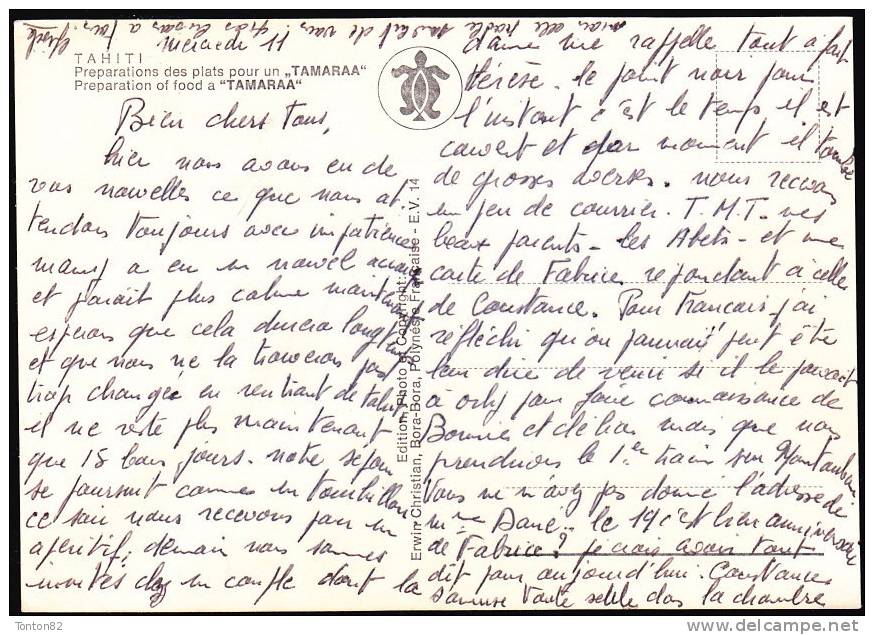 TAHITI
Preparations des plats pour un „TAMARAA"
Preparation of food a "TAMARAA"
mercredi 11
Bien chers tous,
hier nous avons eu de
vos nouvelles ce que nous at
tendons toujours avec impatience
mamy a eu un nouvel
et parait plus calme
esperons que cela durera longtemps
et que nous ne la trouverons pas
trop changée en rentrant de tahiti
il ne reste plus maintenant
que 15 bons jours. notre sejour
se poursuit comme un tourbillon
ce soir nous recevons pour un
aperitif, demain nous sommes
invités chez un couple dont la
dame me rappelle tout a fait
thérèse. le point noir pour
l'instant c'est le temps il est
couvert et par moment il tombe
de grosses averses. nous recevons
un peu de courrier. T.M.T. vos
beaux parents - les - et une
carte de Fabrice repondant à celle
de Constance. Pour Francois j'ai
réfléchi qu'on pourrait peut être
leur dire de venir si il le pouvait
à orly pour faire connaissance de
et de mais que nous
prendrions le 1er train sur Montauban
Vous ne m'avez pas donné l'adresse de
Mme . le 19 c'est bien anniversaire
de Fabrice? je crois avoir tout
dit pour aujourd'hui. Constance
s'amuse toute seule dans la chambre
elle parle
gros bisous a tous.
Edition, Photo et Copyright:
Erwin Christian, Bora-Bora, Polynésie Française - E.V. 14
Tonton82
delcampe.net